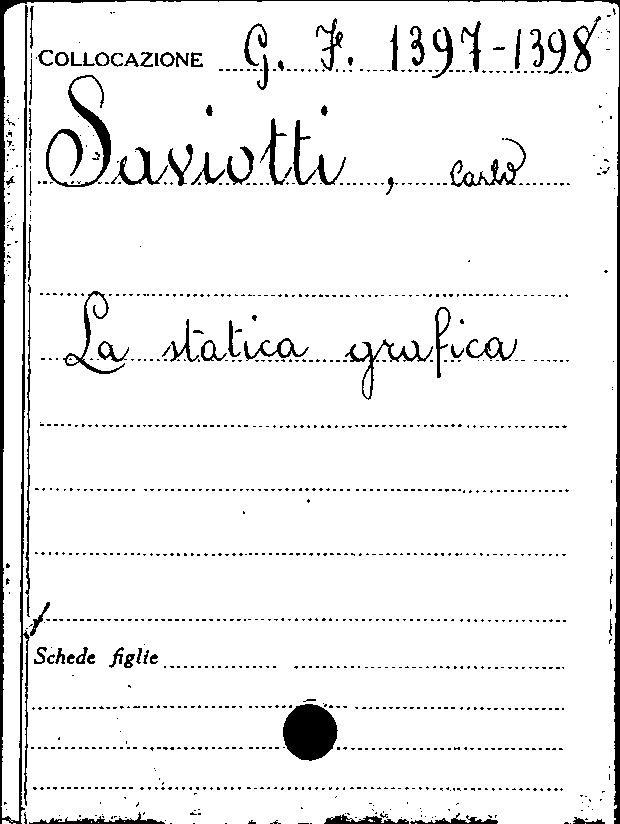 COLLOCAZIONE G. F. 1397-1398
Saviotti, Carlo
La statica grafica
Schede figlie